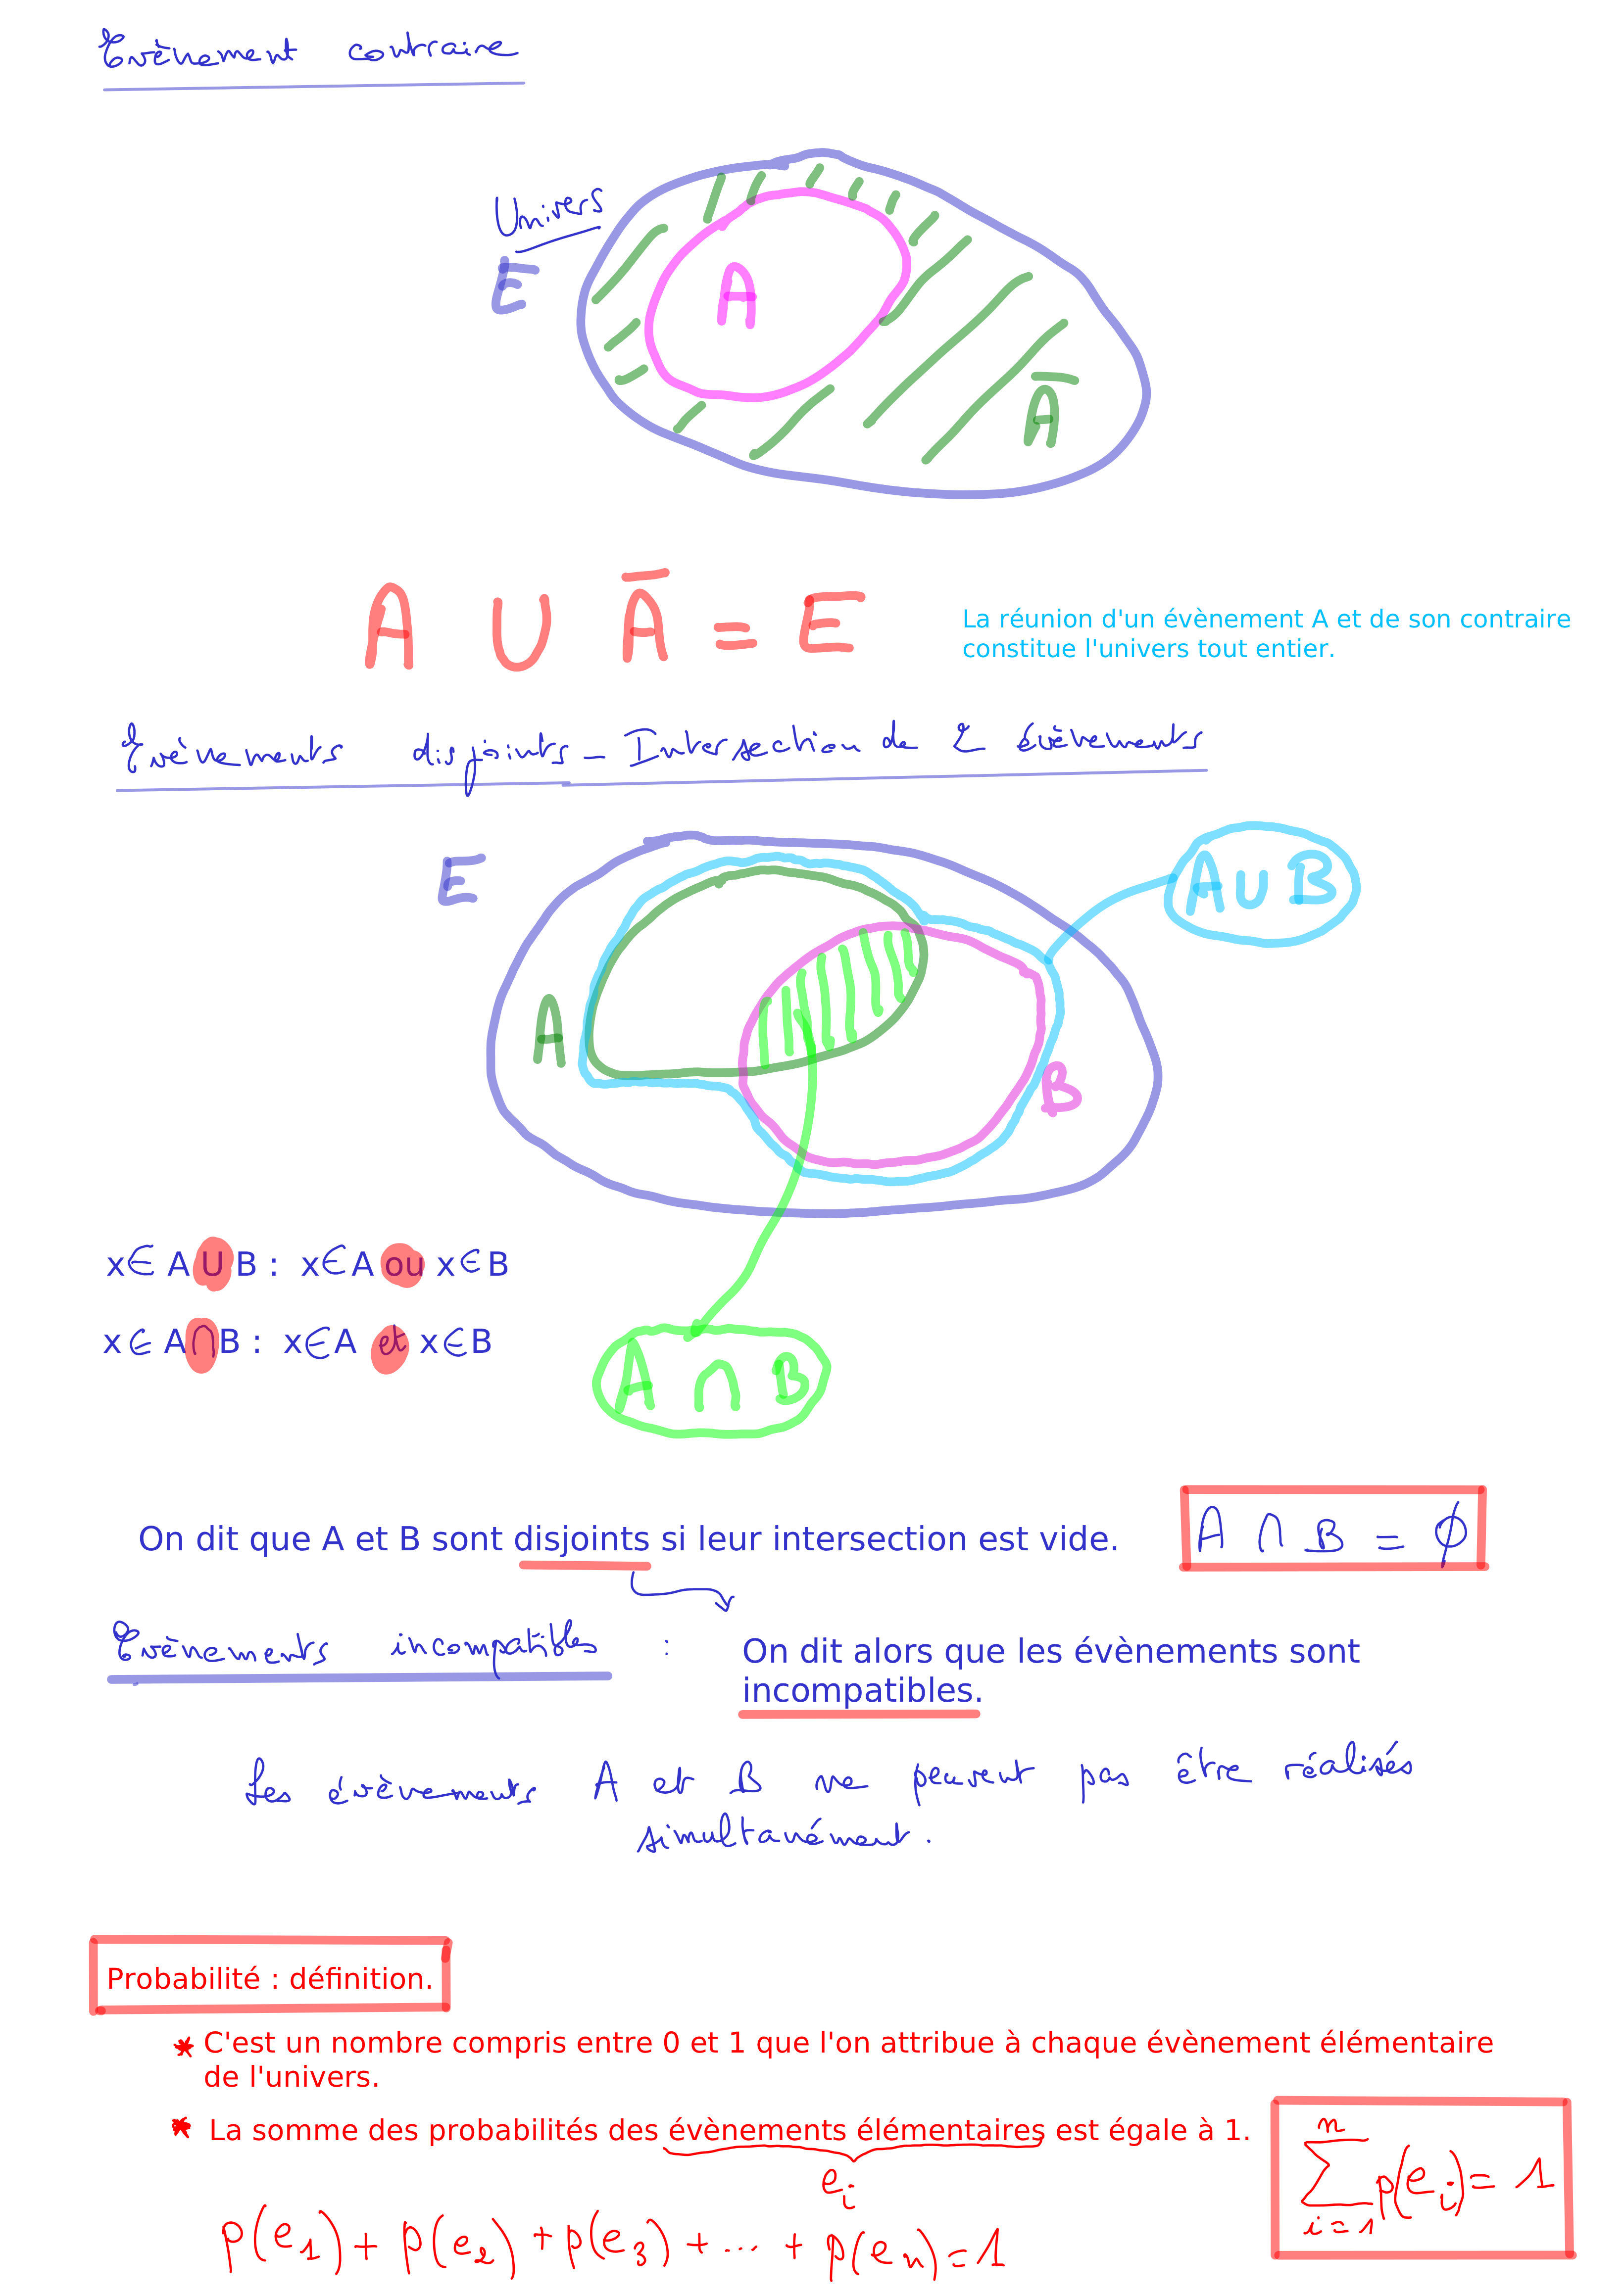 Evènement contraire
Univers
E
A
Ā
A ∪ Ā = E
La réunion d'un évènement A et de son contraire
constitue l'univers tout entier.
Evènements disjoints _ Intersection de 2 évènements
E
A ∪ B
A
B
x∈ A U B : x∈A ou x∈B
x∈ A∩B : x∈A et x∈B
A ∩ B
On dit que A et B sont disjoints si leur intersection est vide.
A ∩ B = ϕ
Evènements incompatibles :
On dit alors que les évènements sont
incompatibles.
Les évènements A et B ne peuvent pas être réalisés
simultanément.
Probabilité : définition.
* C'est un nombre compris entre 0 et 1 que l'on attribue à chaque évènement élémentaire
de l'univers.
* La somme des probabilités des évènements élémentaires est égale à 1.
e_i
∑_{i=1}^{n} p(e_i) = 1
p(e_1) + p(e_2) + p(e_3) + ... + p(e_n) = 1